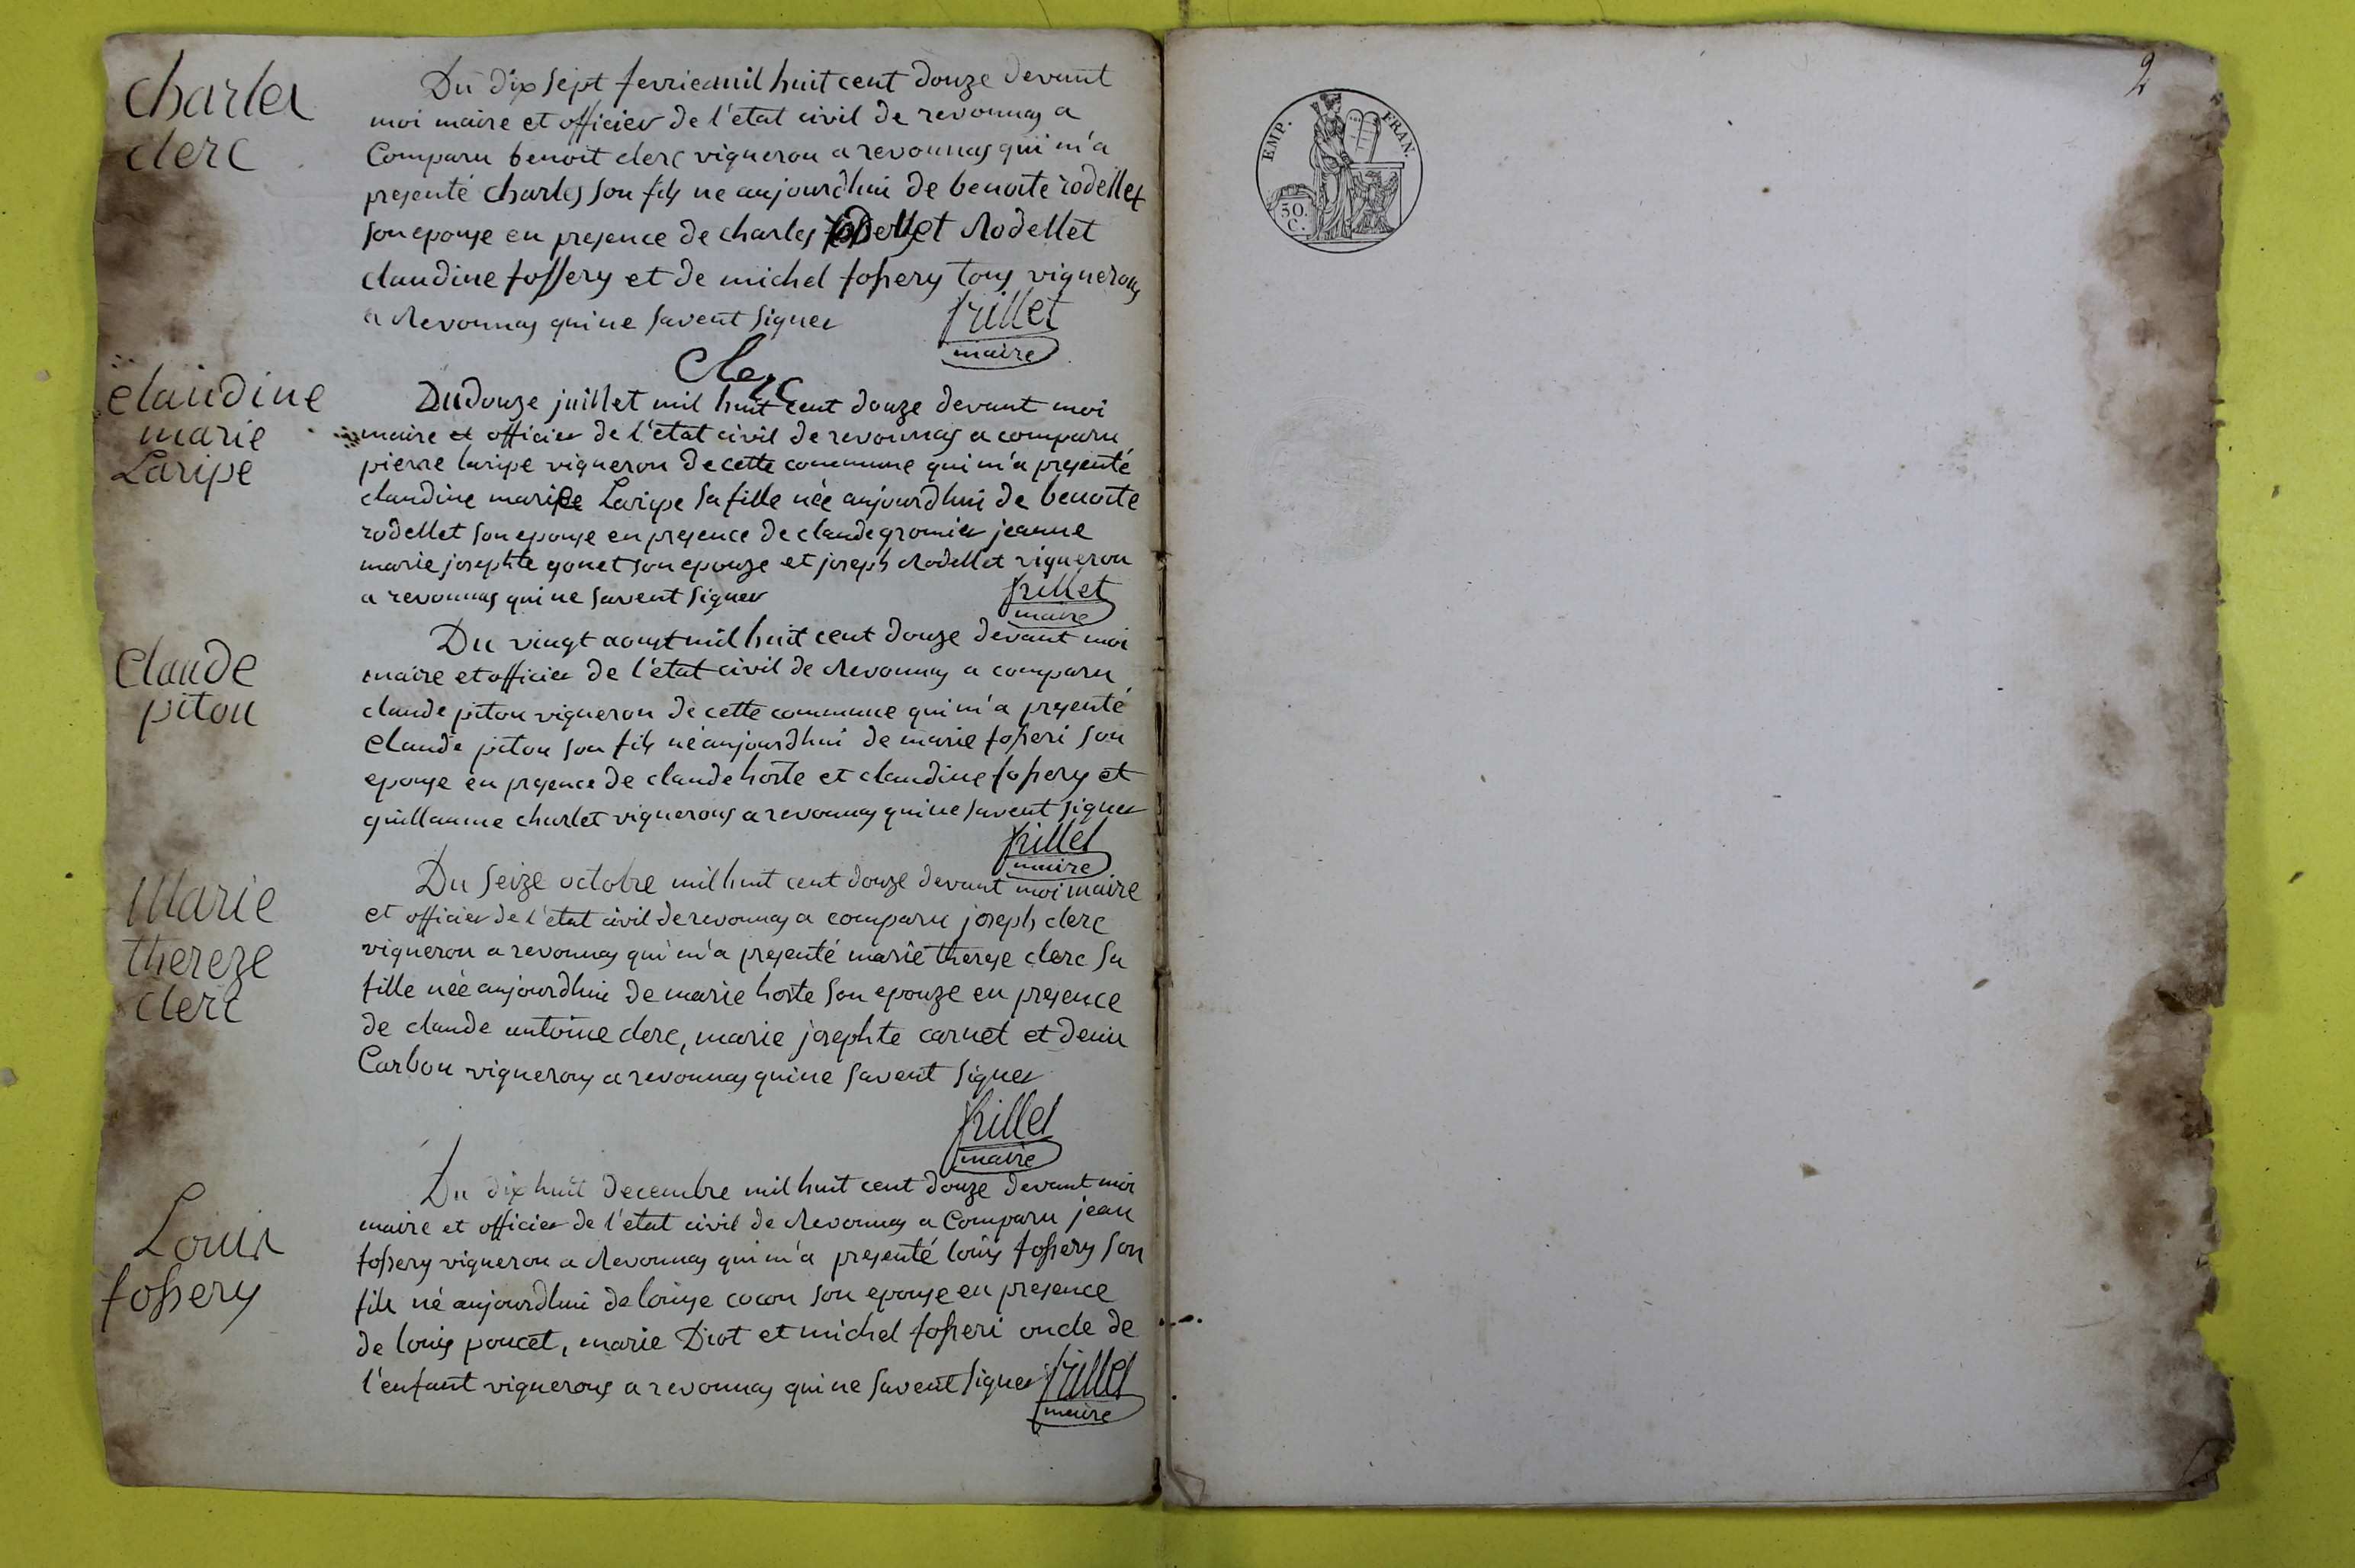 charles
clerc
Du dix sept fevrier mil huit cent douze devant
moi maire et officier de l'etat civil de revonnas a
Comparu benoit clerc vigneron a revonnas qui m'a
presenté charles son fils ne aujourdhui de benoite rodellet
son epouse en presence de charles Rodellet
claudine fossery et de michel fossery tous vignerons
a Revonnas qui ne savent signer
frillet
maire
Clerc
claudine
marie
Laripe
Du douze juillet mil huit cent douze devant moi
maire et officier de l'etat civil de revonnas a comparu
pierre laripe vigneron de cette commune qui m'a presenté
claudine marie Laripe sa fille née aujourdhui de benoite
rodellet son epouse en presence de claude gromier jeanne
marie josephte gonet son epouze et joseph Rodellet vigneron
a revonnas qui ne savent signer
frillet
maire
Claude
piton
Du vingt aoust mil huit cent douze devant moi
maire et officier de l'etat civil de Revonnas a comparu
claude piton vigneron de cette commune qui m'a presenté
Claude piton son fils né aujourdhui de marie fosseri son
epouse en presence de claude horte et claudine fossery et
guillaume charlet vignerons a revonnas qui ne savent signer
frillet
maire
Marie
thereze
clerc
Du seize octobre mil huit cent douze devant moi maire
et officier de l'etat civil de revonnas a comparu joseph clerc
vigneron a revonnas qui m'a presenté marie therese clerc sa
fille née aujourdhui de marie horte son epouze en presence
de claude antoine clerc, marie josephte carnet et denis
Carbon vignerons a revonnas qui ne savent signer
frillet
maire
Louis
fossery
Du dix huit decembre mil huit cent douze devant moi
maire et officier de l'etat civil de Revonnas a Comparu jean
fossery vigneron a Revonnas qui m'a presenté louis fossery son
fils né aujourdhui de louise cocon son epouse en presence
de louis poncet, marie Diot et michel fosseri oncle de
l'enfant vignerons a revonnas qui ne savent signer
frillet
maire
2
EMP. FRAN.
50.
C.